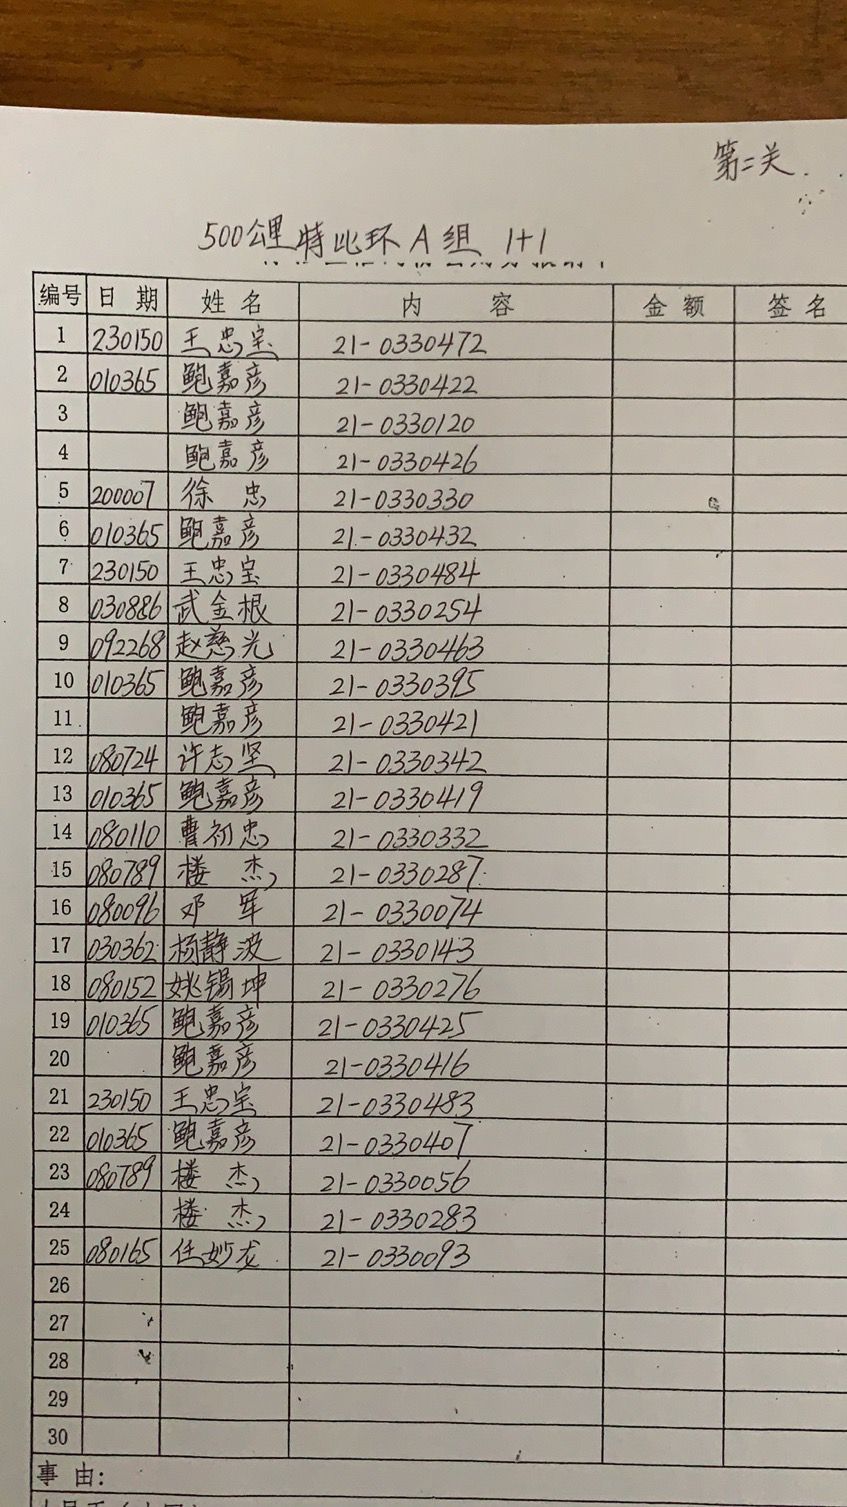 第二关
500公里特比环A组 1+1
编号 日期 姓名 内容 金额 签名
1 230150 王忠宝 21-0330472
2 010365 鲍嘉彦 21-0330422
3 鲍嘉彦 21-0330120
4 鲍嘉彦 21-0330426
5 200007 徐忠 21-0330330
6 010365 鲍嘉彦 21-0330432
7 230150 王忠宝 21-0330484
8 030886 武金根 21-0330254
9 092268 赵慈光 21-0330463
10 010365 鲍嘉彦 21-0330395
11 鲍嘉彦 21-0330421
12 080724 许志坚 21-0330342
13 010365 鲍嘉彦 21-0330419
14 080110 曹初忠 21-0330332
15 080789 楼杰 21-0330287
16 080096 邓军 21-0330074
17 030362 杨静波 21-0330143
18 080152 姚锡坤 21-0330276
19 010365 鲍嘉彦 21-0330425
20 鲍嘉彦 21-0330416
21 230150 王忠宝 21-0330483
22 010365 鲍嘉彦 21-0330407
23 080789 楼杰 21-0330056
24 楼杰 21-0330283
25 080165 任妙龙 21-0330093
26
27
28
29
30
事由: